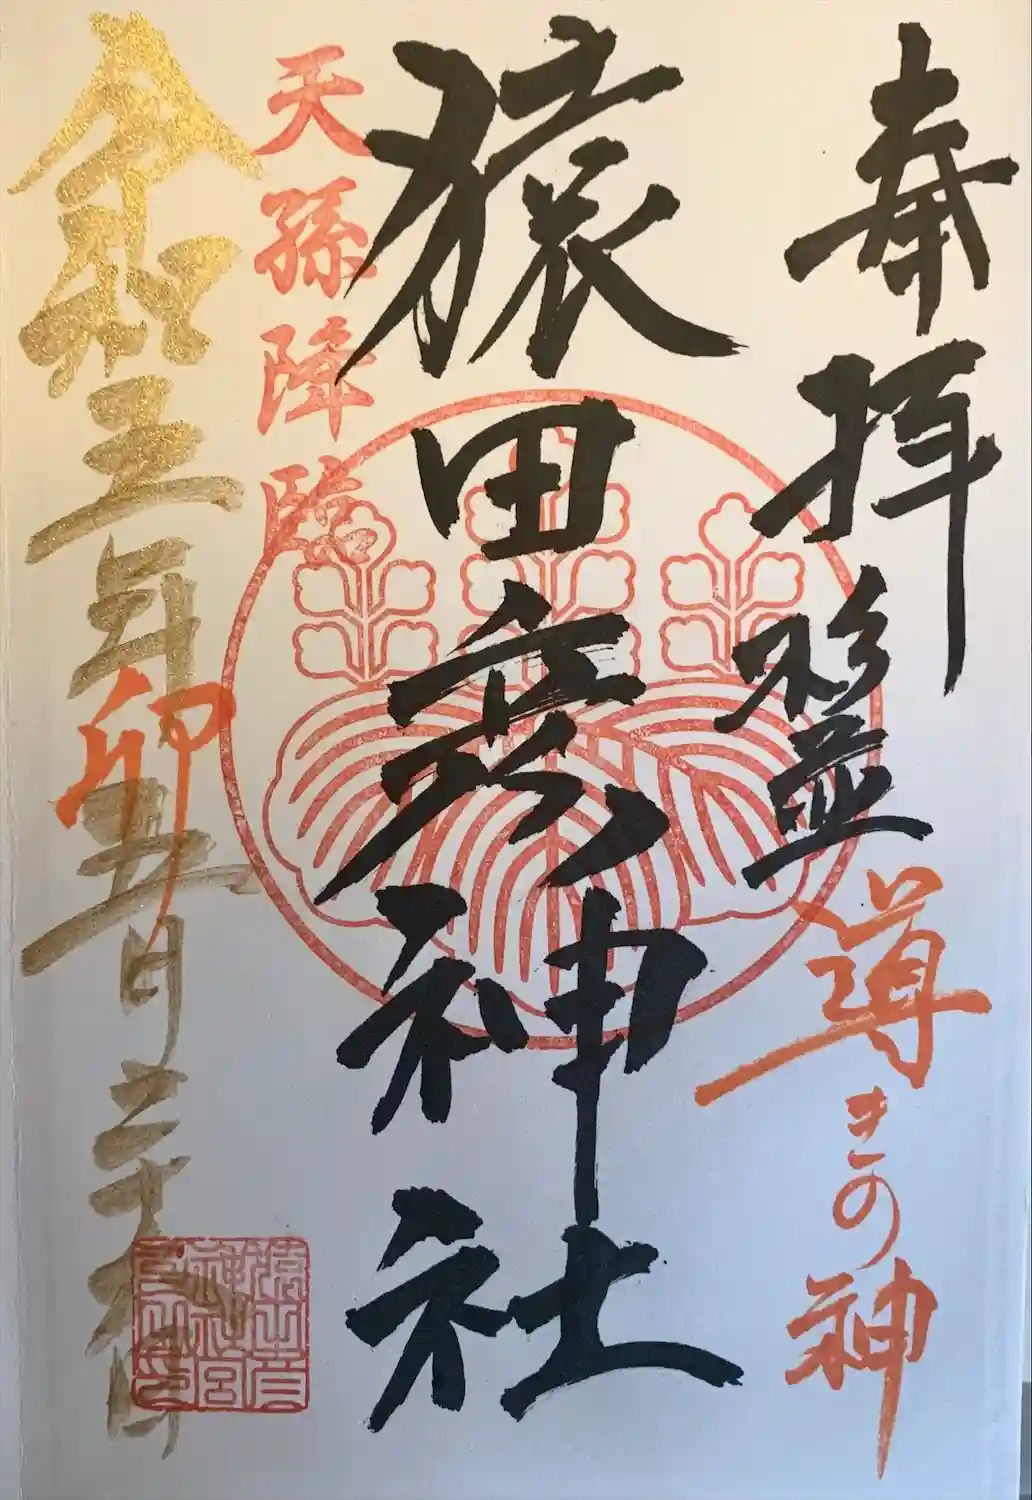 奉拝
導きの神
猿田彦神社
天孫降臨
令和五年五月二十
卯
猿田彦
神社宮
司之印